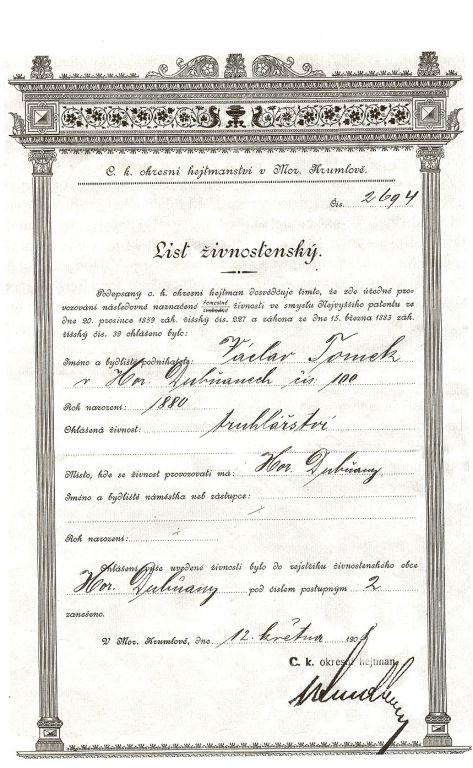 C. k. okresní hejtmanství v Mor. Krumlově.
Čís. 2694
List živnostenský.
Podepsaný c. k. okresní hejtman dosvědčuje tímto, že zde úředně pro-
vozování následovně naznačené řemeslné svobodné živnosti ve smyslu Nejvyššího patentu ze
dne 20. prosince 1859 zák. říšský čís. 227 a zákona ze dne 15. března 1883 zák.
říšský čís. 39 ohlášeno bylo:
Jméno a bydliště podnikatele: Václav Tomek
v Hor. Dubňanech čís. 100
Rok narození: 1880
Ohlášená živnost: truhlářství
Místo, kde se živnost provozovati má: Hor. Dubňany
Jméno a bydliště náměstka neb zástupce:
Rok narození:
Ohlášení výše uvedené živnosti bylo do rejstříku živnostenského obce
Hor. Dubňany pod číslem postupným 2
zanešeno.
V Mor. Krumlově, dne 12. května 190
C. k. okresní hejtman